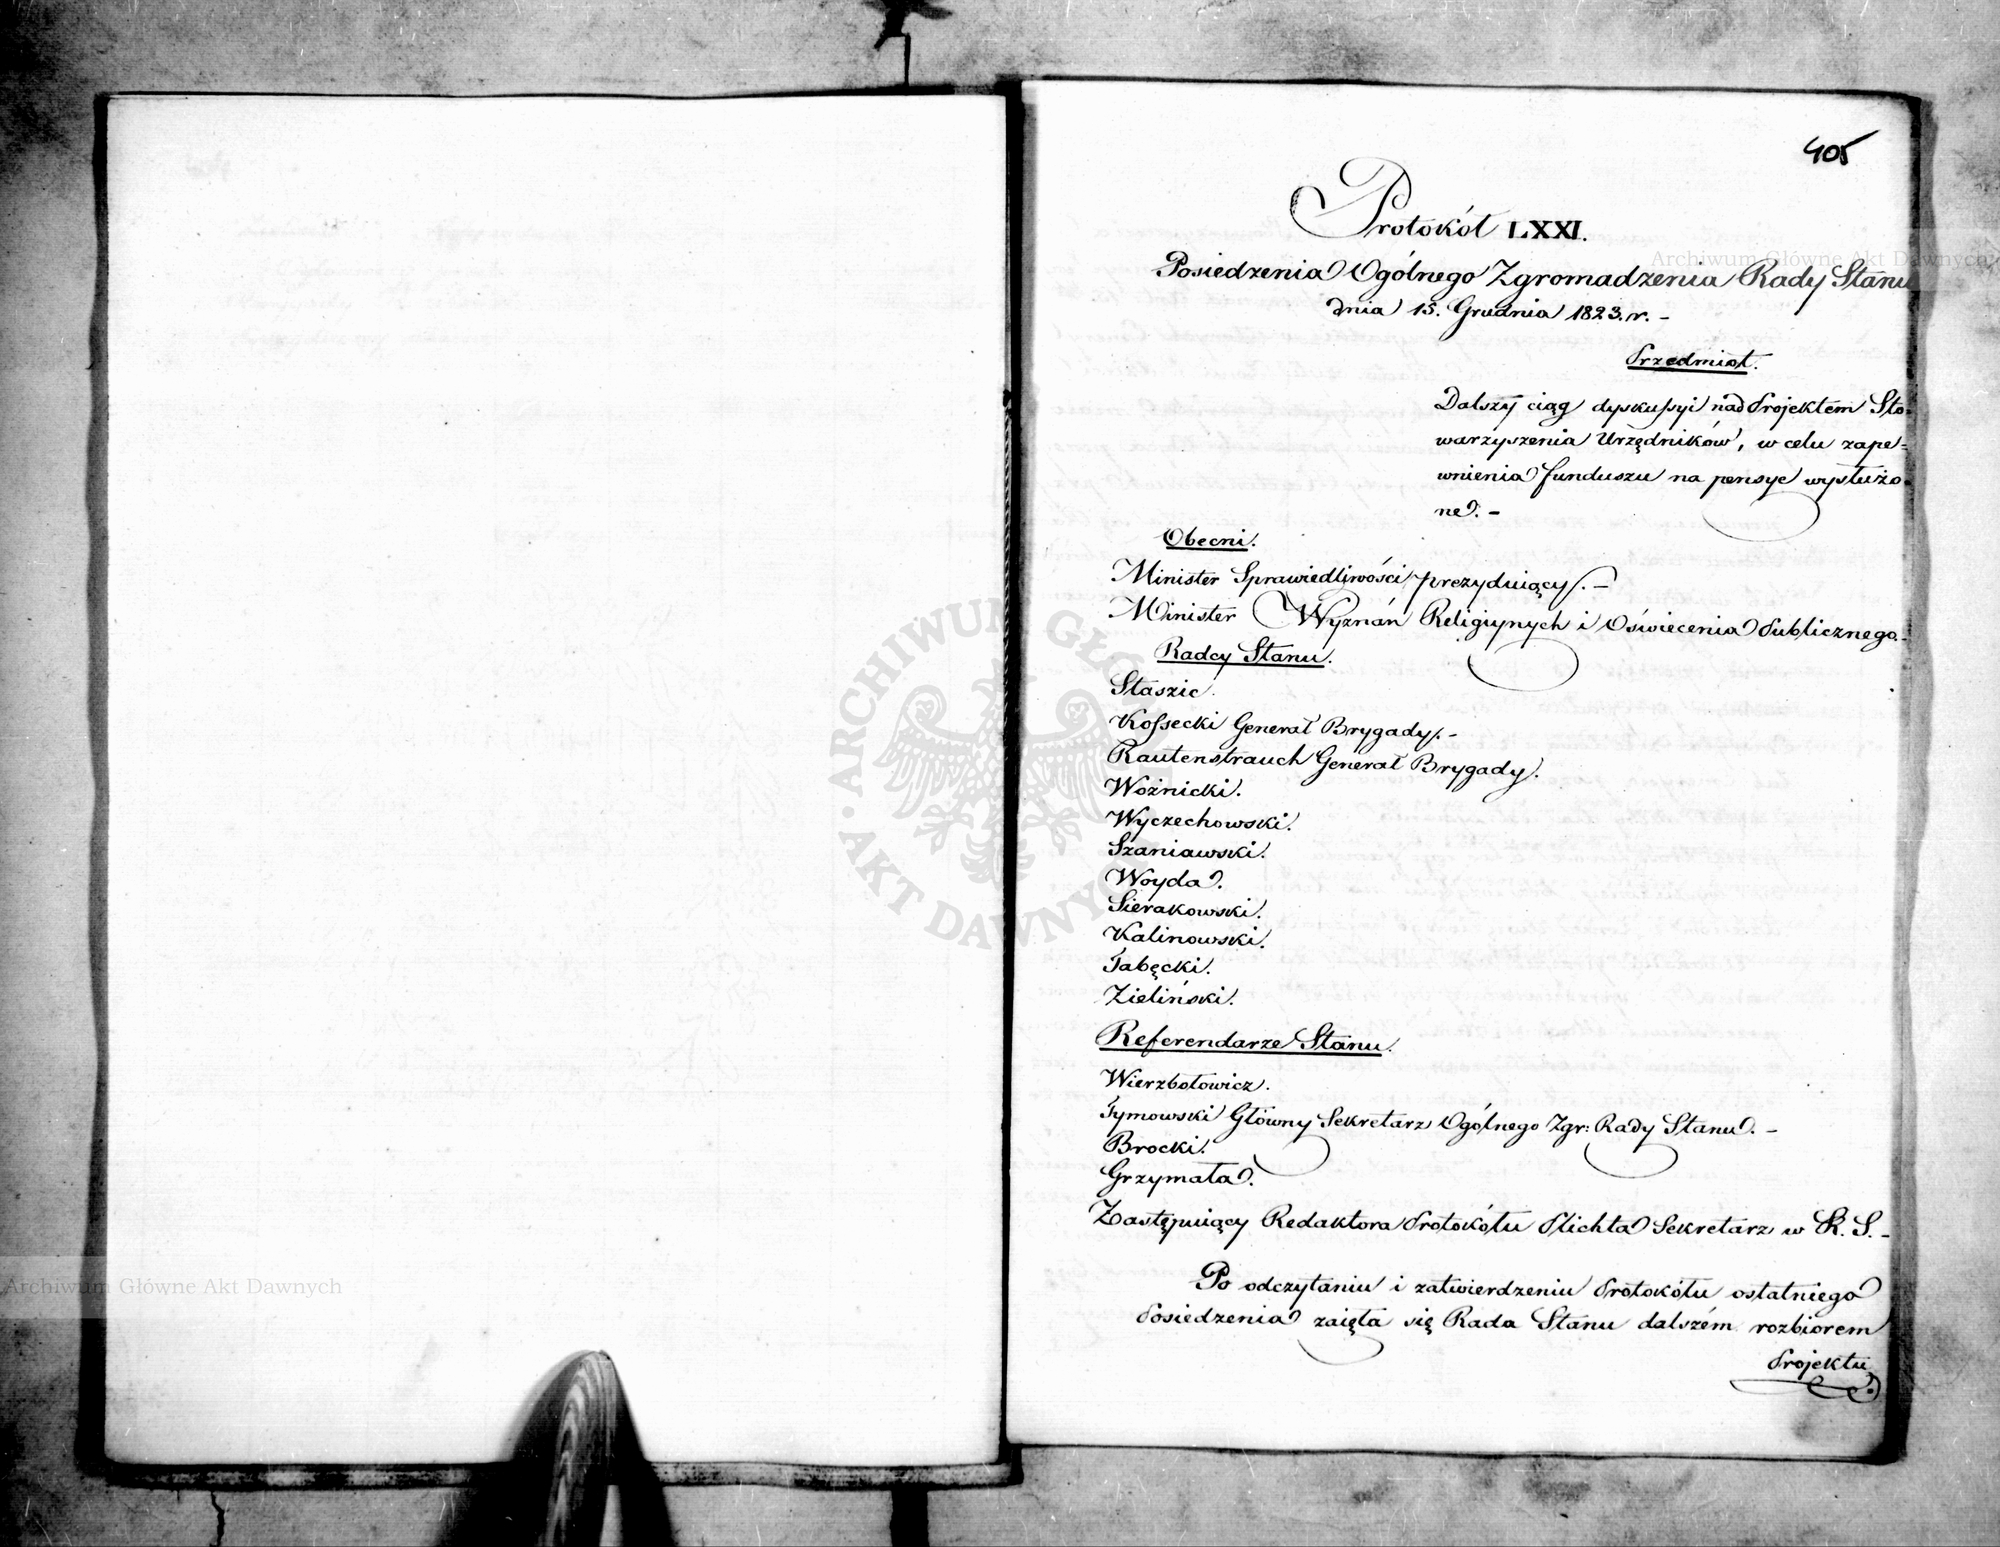 405
Protokół LXXI.
Posiedzenia Ogólnego Zgromadzenia Rady Stanu
dnia 15. Grudnia 1823. r. -
Przedmiot.
Dalszy ciąg dyskussyi nad Projektem Sto-
warzyszenia Urzędników, w celu zape-
wnienia funduszu na pensye wysłużo-
ne. -
Obecni.
Minister Sprawiedliwości prezyduiący. -
Minister Wyznań Religiynych i Oświecenia Publicznego. -
Radcy Stanu.
Staszic.
Kossecki Generał Brygady. -
Rautenstrauch Generał Brygady.
Woźnicki.
Wyczechowski.
Szaniawski.
Woyda.
Sierakowski.
Kalinowski.
Tabęcki.
Zieliński.
Referendarze Stanu.
Wierzbołowicz.
Tymowski Główny Sekretarz Ogólnego Zgr: Rady Stanu. -
Brocki.
Grzymała.
Zastępuiący Redaktora Protokółu Plichta Sekretarz w R. S. -
Po odczytaniu i zatwierdzeniu Protokółu ostatniego
Posiedzenia zaięła się Rada Stanu dalszém rozbiorem
Projektu
Archiwum Główne Akt Dawnych
ARCHIWUM GŁÓWNE AKT DAWNYCH
Archiwum Główne Akt Dawnych